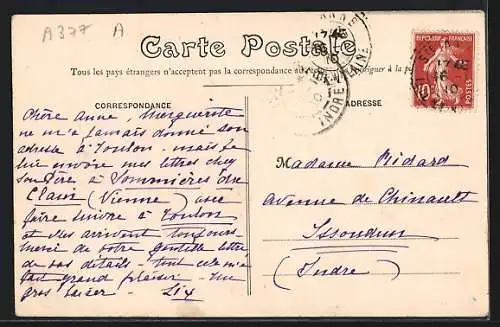 A377 A
Carte Postale
Tous les pays étrangers n'acceptent pas la correspondance
CORRESPONDANCE
ADRESSE
RÉPUBLIQUE FRANÇAISE
10
POSTES
INDRE
Chère Anne, Marguerite
ne m'a jamais donné son
adresse à Toulon. mais je
lui envoie mes lettres chez
son Père à Sommières du
Clain (Vienne) avec
faire suivre à Toulon
et elles arrivent toujours.
merci de votre gentille lettre
de vos détails - tout cela m'a
fait grand plaisir - Un
gros baiser -
Madame Ridard
avenue de Chinault
Issoudun
(Indre)